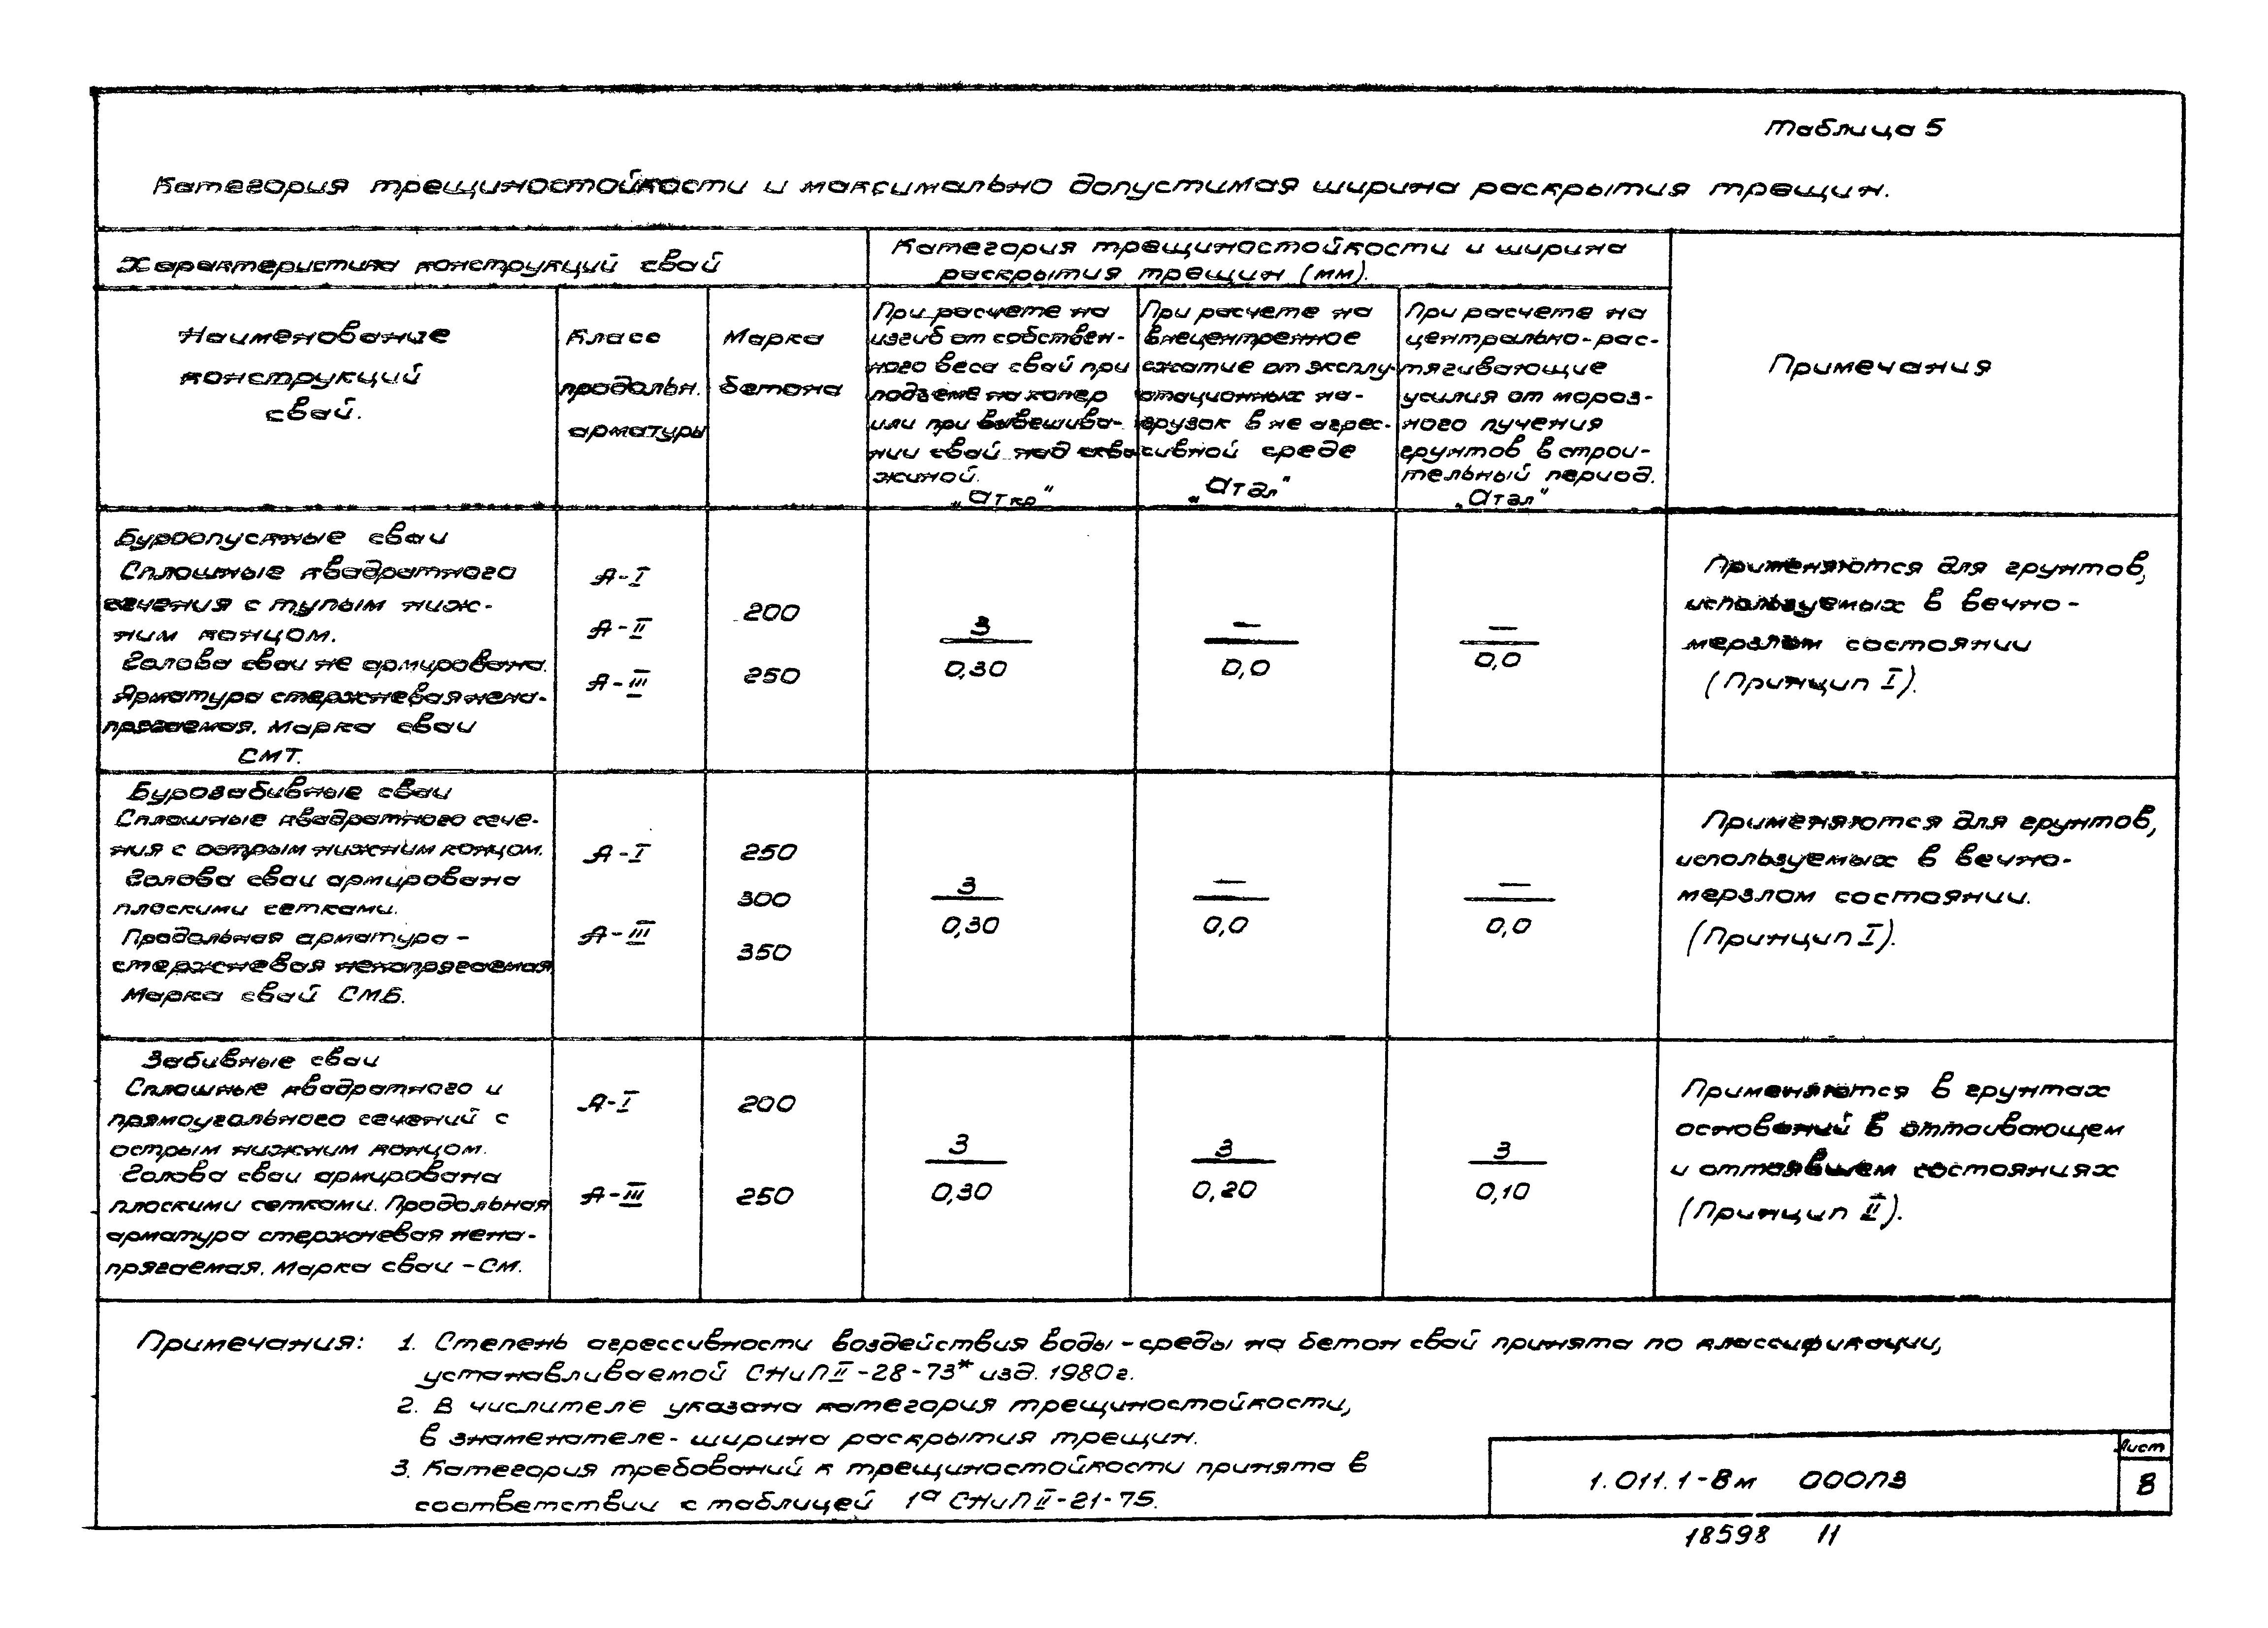 Таблица 5
Категория трещиностойкости и максимально допустимая ширина раскрытия трещин.
Характеристика конструкций свай
Категория трещиностойкости и ширина
раскрытия трещин (мм).
Наименование
конструкций
свай.
Класс
продольн.
арматуры
Марка
бетона
При расчете на
изгиб от собствен-
ного веса свай при
подъеме на копер
или при вывешива-
нии свай над сква
жиной.
„Aткр"
При расчете на
внецентренное
сжатие от эксплу-
отационных на-
грузок в не агрес-
сивной среде
„Атдл"
При расчете на
центрально-рас-
тягивающие
усилия от мороз-
ного пучения
грунтов в строи-
тельный период.
„Атдл"
Примечания
Буроопускные сваи
Сплошные квадратного
сечения с тупым ниж-
ним концом.
Голова сваи не армирована.
Арматура стержневая нена-
прягаемая. Марка сваи
СМТ.
А-I
А-II
А-III
200
250
3
0,30
—
0,0
—
0,0
Применяются для грунтов,
используемых в вечно-
мерзлом состоянии
(Принцип I).
Бурозабивные сваи
Сплошные квадратного сече-
ния с острым нижним концом.
Голова сваи армирована
плоскими сетками.
Продольная арматура-
стержневая ненапрягаемая
Марка свай СМБ.
А-I
А-III
250
300
350
3
0,30
—
0,0
—
0,0
Применяются для грунтов,
используемых в вечно-
мерзлом состоянии.
(Принцип I).
Забивные сваи
Сплошные квадратного и
прямоугольного сечений с
острым нижним концом.
Голова сваи армирована
плоскими сетками. Продольная
арматура стержневая нена-
прягаемая. Марка сваи - СМ.
А-I
А-III
200
250
3
0,30
3
0,20
3
0,10
Применяются в грунтах
оснований в оттаивающем
и оттаявшем состояниях
(Принцип II).
Примечания: 1. Степень агрессивности воздействия воды-среды на бетон свай принята по классификации,
устанавливаемой СНиП II-28-73* изд. 1980г.
2. В числителе указана категория трещиностойкости,
в знаменателе- ширина раскрытия трещин.
3. Категория требований к трещиностойкости принята в
соответствии с таблицей 1а СНиП II-21-75.
1.011.1-8м 000ПЗ
Лист
8
18598 11